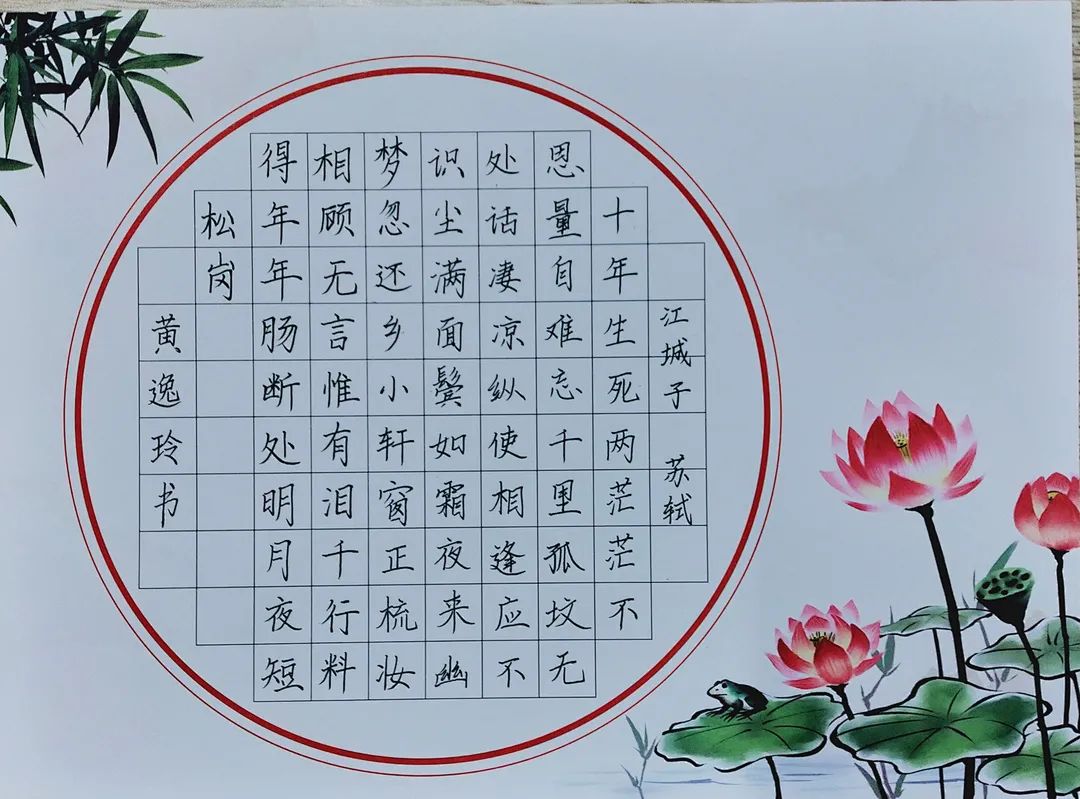 江城子 苏轼
十年生死两茫茫不
恩量自难忘千里孤坟无
处话凄凉纵使相逢应不
识尘满面鬓如霜夜来幽
梦忽还乡小轩窗正梳妆
相顾无言惟有泪千行料
得年年肠断处明月夜短
松岗
黄逸玲书